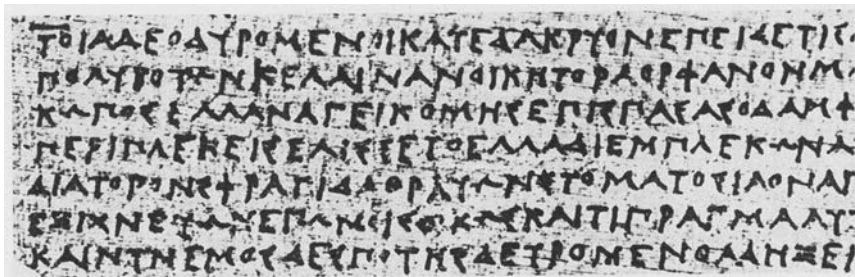 ΤΟΙΑΔΕΟΔΥΡΟΜΕΝΟΙΚΑΤΕΔΑΚΡΥΟΝΕΠΕΙΔΕΤΙΣ
ΠΟΛΥΒΟΤΩΝΚΕΛΑΙΝΑΝΟΙΚΗΤΟΡΑΟΡΦΑΝΟΝΜΑ
ΚΩΠΟΣΕΛΛΑΝΑΓΕΙΚΟΜΗΣΕΠΙΣΠΑΣΑΣΟΔΑΜΦ
ΠΕΡΙΠΛΕΚΕΙΣΕΛΙΣΣΕΤΟΕΛΛΑΔΙΕΜΠΛΕΚΩΝΑ
ΔΙΑΤΟΡΟΝΣΦΡΑΓΙΔΑΘΡΑΥΩΝΣΤΟΜΑΤΟΣΙΑΟΝΑΓ
ΕΞΙΧΝΕΥΩΝΕΓΩΜΟΙΣΟΙΚΩΣΚΑΙΤΙΠΡΑΓΜΑΑΥΤ
ΚΑΙΝΥΝΕΜΟΣΔΕΣΠΟΤΗΣΔΕΥΡΟΜΕΝΘΑΔΗΞΕΙ